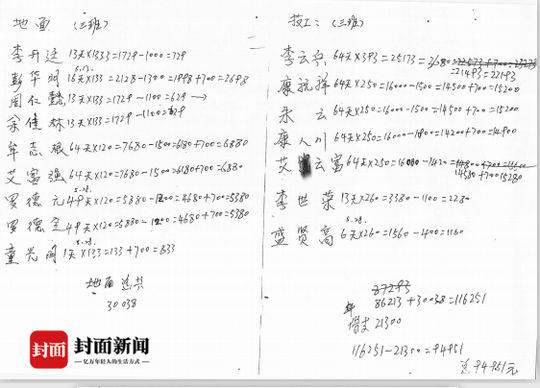 地面 (三班)
李升廷 13天×133=1729-1000=729
彭华明 16天×133=2128-1300=1998+700=2698
周仁 13天×133=1729-1100=629 →
余佳林 13天×133=1729-1100=
牟志根 64天×120=7680-1500=6180+700=6880
艾富强 64天×120=7680-1500=6180+700=6880
罗德元 49天×120=5880-1200=4680+700=5380
罗德全 49天×120=5880-1200=4680+700=5380
童光明 1天×133=133+700=833
地面 总共
30038
技工: (三班)
李云 64天×393=25173
=21493=22193
康祝祥 64天×250=16000-1500=14500+700=15200
云 64天×250=16000-1500=14500+700=15200
康人川 64天×250=16000-1800=14200+700=14900
艾云富 64天×250=16000-1420=
14580+700=15280
李世荣 13天×260=3380-1100=2280
盛贤高 6天×260=1560-400=1160
86213+30038=116251
借支 21300
116251-21300=94951
总94951元
封面
封面新闻
亿万年轻人的生活方式